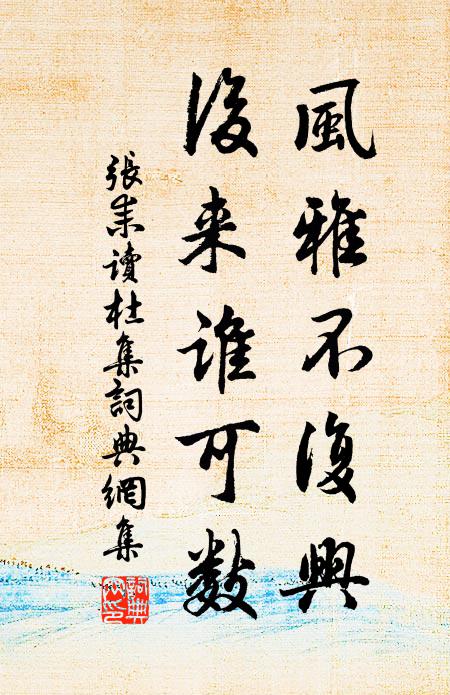 風雅不復興
後来誰可數
張耒讀杜集詞典網集